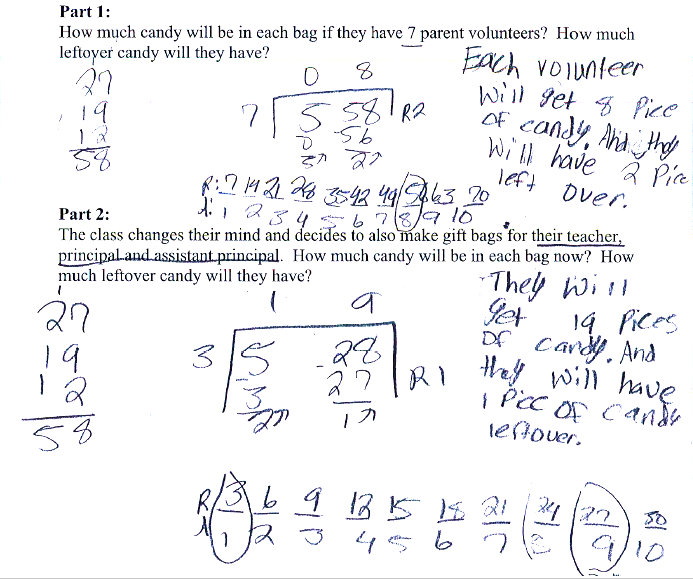 Part 1:
How much candy will be in each bag if they have 7 parent volunteers? How much
leftover candy will they have?
27
19
12
58
0 8
7 5 58 R2
0 -56
5 2
Each volunteer
will get 8 Pice
OF candy. And they
will have 2 Pice
left over.
R: 7 14 21 28 35 42 49 56 63 70
1 2 3 4 5 6 7 8 9 10
Part 2:
The class changes their mind and decides to also make gift bags for their teacher,
principal and assistant principal. How much candy will be in each bag now? How
much leftover candy will they have?
1
27
19
12
58
1 9
3 5 -28
-3 27 R1
2 1
They will
get 19 Pices
OF candy. And
they will have
1 Pice OF candy
leftover.
R 3 6 9 12 15 18 21 24 27 30
1 2 3 4 5 6 7 8 9 10